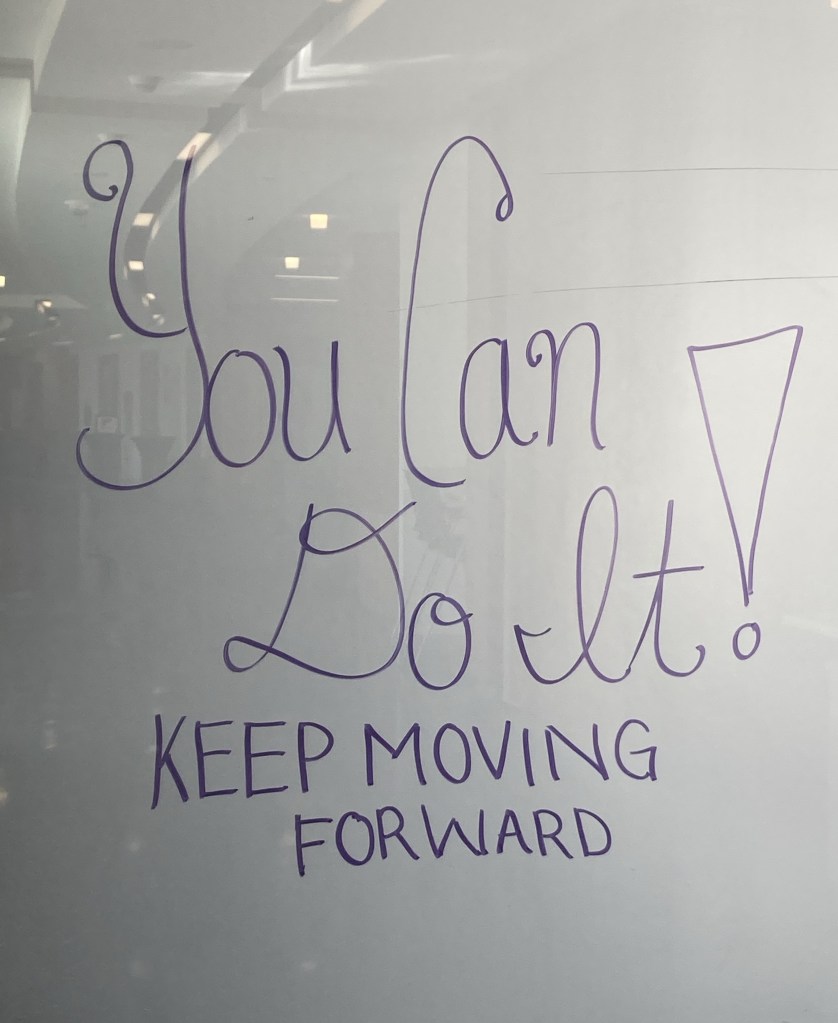 You Can
Do It!
KEEP MOVING
FORWARD